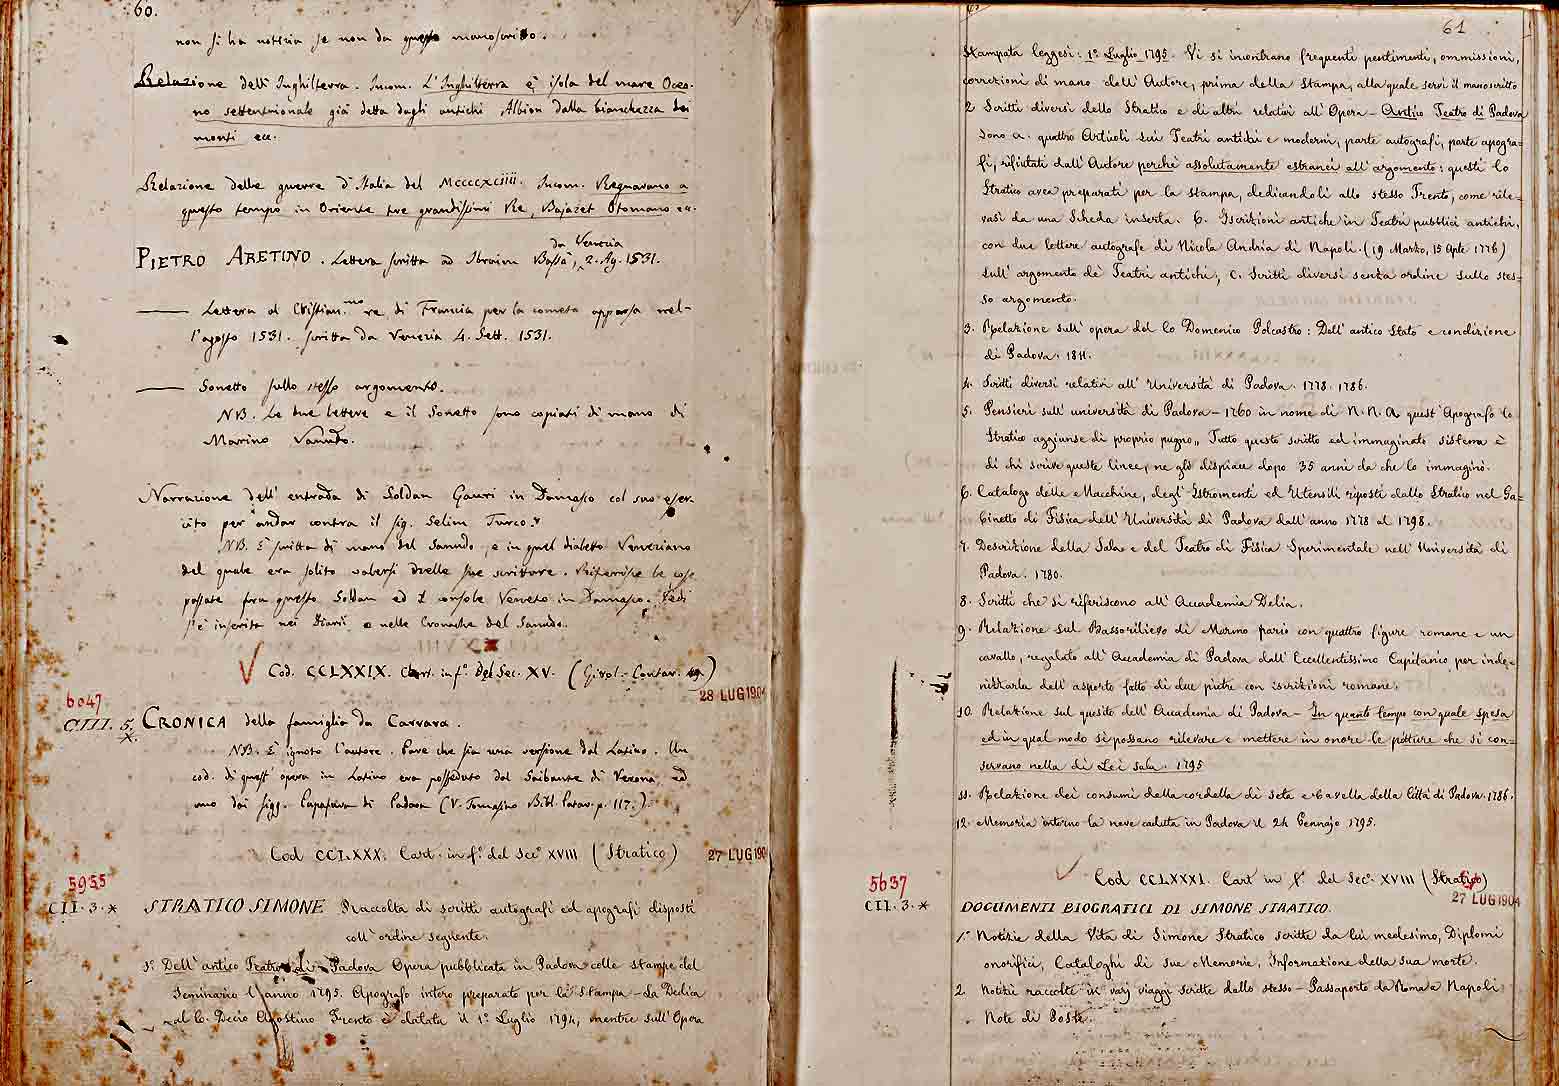 60.
non si ha notizia se non da questo manoscritto.
Relazione dell' Inghilterra. Incom. L'Inghilterra è isola del mare Ocea-
no settentrionale già detta dagli antichi Albion dalla bianchezza dei
monti ecc.
Relazione delle guerre d'Italia del MCCCCXCIIII. Incom. Regnavano a
questo tempo in Oriente tre grandissimi Re, Bajazet Otomano ec.
PIETRO ARETINO. Lettera scritta ad Ibraim Bassà, da Venezia 2. Ag. 1531.
—— Lettera al Cristian.mo re di Francia per la cometa apparsa nel-
l'agosto 1531. scritta da Venezia 4. Sett. 1531.
—— Sonetto sullo stesso argomento.
NB. Le due lettere e il Sonetto sono copiati di mano di
Marino Sanudo.
Narrazione dell' entrada di Soldan Gauri in Damasco col suo eser-
cito per andar contra il sig. Selim Turco.
NB. È scritta di mano del Sanudo, e in quel dialetto Veneziano
del quale era solito valersi nelle sue scritture. Riferisce le cose
passate fra questo Soldan ed il console Veneto in Damasco. Vedi
s'è inserita nei Diarii o nelle Cronache del Sanudo.
Cod. CCLXXIX. Cart. in f.° del Sec. XV. (Girol. Contar. 49.)
28 LUG 1904
6047
CIII. 5. *
CRONICA della famiglia da Carrara.
NB. È ignoto l'autore. Pare che sia una versione dal Latino. Un
cod. di quest' opera in Latino era posseduto dal Saibante di Verona, ed
uno dai sigg. Papafava di Padova (V. Tomasino Bibl. Patav. p. 117.)
Cod CCLXXX. Cart. in f.° del Sec.° XVIII (Stratico)
27 LUG 190
5955
CII. 3. *
STRATICO SIMONE Raccolta di scritti autografi ed apografi disposti
coll' ordine seguente.
1.° Dell' antico Teatro di Padova Opera pubblicata in Padova colle stampe del
Seminario l'anno 1795. Apografo intero preparato per la stampa – La Dedica
al C. Decio Agostino Trento è datata il 1.° Luglio 1794, mentre sull' Opera
61
Stampata leggesi: 1.° Luglio 1795. Vi si incontrano frequenti pentimenti, ommissioni,
correzioni di mano dell' Autore, prima della stampa, alla quale servì il manoscritto
2 Scritti diversi dello Stratico e di altri relativi all' Opera – Antico Teatro di Padova
sono a. quattro Articoli sui Teatri antichi e moderni, parte autografi, parte apogra=
fi, rifiutati dall' Autore perchè assolutamente estranei all' argomento: questi lo
Stratico avea preparati per la stampa, dedicandoli allo stesso Trento, come rile=
vasi da una Scheda inserta. b. Iscrizioni antiche in Teatri pubblici antichi,
con due lettere autografe di Nicola Andria di Napoli. (19 Marzo, 15 Aprile 1776)
sull' argomento de' Teatri antichi, c. Scritti diversi senza ordine sullo stes=
so argomento.
3. Relazione sull' opera del Co Domenico Polcastro: Dell' antico Stato e condizione
di Padova. 1811.
4. Scritti diversi relativi all' Università di Padova. 1778. 1786.
5. Pensieri sull' università di Padova – 1760 in nome di N. N. A quest' Apografo lo
Stratico aggiunse di proprio pugno „ Tutto questo scritto ed immaginato sistema è
di chi scrive queste linee, ne gli dispiace dopo 35 anni da che lo immaginò.
6. Catalogo delle Macchine, degl' Istromenti ed Utensili riposti dallo Stratico nel Ga=
binetto di Fisica dell' Università di Padova dall' anno 1778 al 1798.
7. Descrizione della Sala e del Teatro di Fisica Sperimentale nell' Università di
Padova. 1780.
8. Scritti che si riferiscono all' Accademia Delia.
9. Relazione sul Bassorilievo di Marmo pario con quattro figure romane e un
cavallo, regalato all' Accademia di Padova dall' Eccellentissimo Capitanio per inde=
nizzarla dell' asporto fatto di due pietre con iscrizioni romane.
10. Relazione sul quesito dell' Accademia di Padova – In quanto tempo con quale spesa
ed in qual modo si possano rilevare e mettere in onore le pitture che si con=
servano nella di Lei sala. 1795
11. Relazione dei consumi della cordella di seta e bavella della Città di Padova. 1786.
12. Memoria intorno la neve caduta in Padova il 24 Gennajo 1795.
Cod CCLXXXI. Cart in f.° del Sec.° XVIII (Stratico)
27 LUG 1904
5637
CII. 3. *
DOCUMENTI BIOGRAFICI DI SIMONE STRATICO.
1.° Notizie della Vita di Simone Stratico scritte da lui medesimo, Diplomi
onorifici, Cataloghi di sue Memorie, Informazione della sua morte.
2. Notizie raccolte in varj viaggi scritte dallo stesso – Passaporto da Roma a Napoli
Note di Poste.